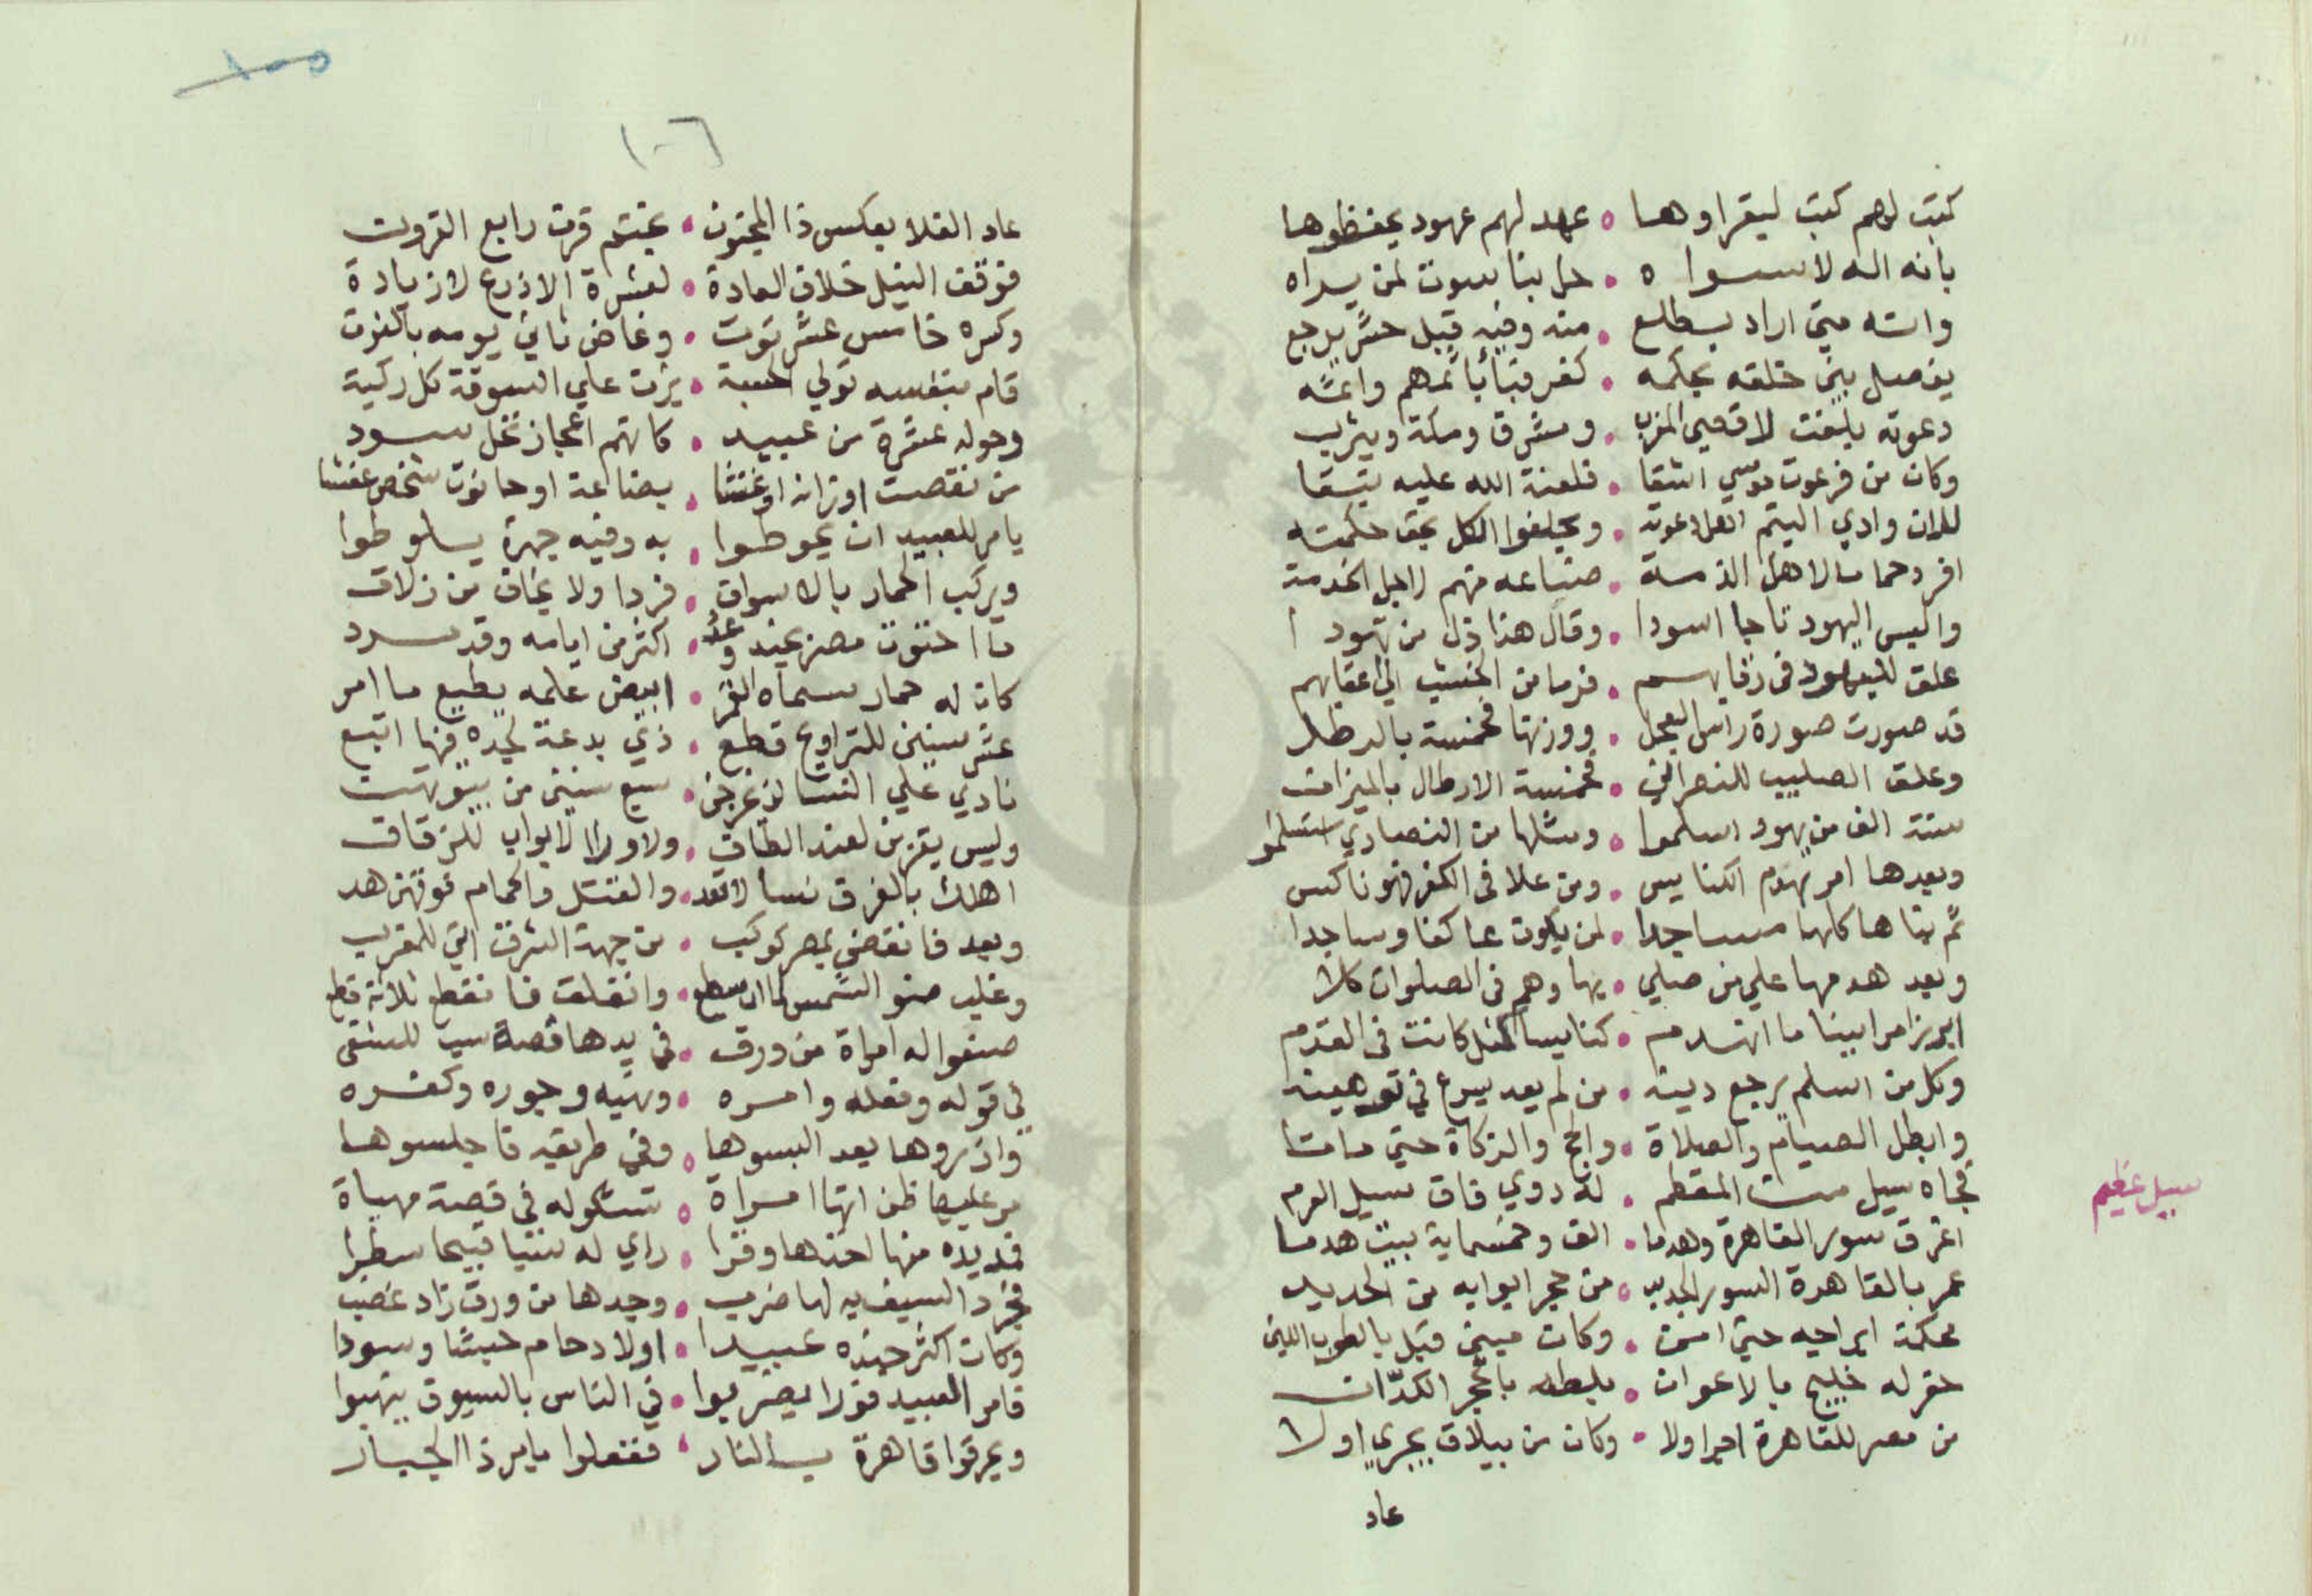 كتبت لهم كتب ليقراوها ٥ عهد لهم عهود يحفظوها
بانه اله لا سواه • حل بناسوت لمن يراه
وانه متي اراد يطلع • منه وفيه قبل حشر يرجع
يفصل بين خلقه بحكمه • كفر
دعوته بلغت لاقصي المغرب • ومشرق ومكة ويثرب
وكان من فرعون موسي اشقا • فلعنة الله عليه تبقا
وادي التيم • ويحلفوا الكل بحق حكمته
افرد حمامـا لاهل الذمـة • صناعه منهم لاجل الخدمة
والبس اليهود تاجا اسودا • وقال هذا ذل من تهودا
علق لليهود في رقابهـم • قرما من الخشب الي اعقابهم
قد صورت صورة راس العجل • ووزنها خمسة بالرطل
وعلق الصليب للنصراني • خمسة الارطال بالميزان
ستة الف من يهود اسلموا ٥ ومثلها من النصاري استسلموا
وبعدها امر بهدم الكنايس • ومن علا في الكفر فهو ناكس
ثم بناها كلها مساجدا • لمن يكون عاكفا وساجدا
وبعد هدمها علي من صلي • بها وهم في الصلوات كلا
ابرز امرا بينا ما انهـدم • كنايسا لمثل كانت في القدم
وكل من اسلم يرجع دينه • من لم يعد يسرع في توهينه
وابطل الصيام والصلاة • والحج والزكاة حتي ماتا
فجاه سيل من المقطم • له دوي فاق سيل العرم
سيل عظيم
اغرق سور القاهرة وهدما • الف وخمسماية بيت هدما
عمر بالقاهرة السور الجديد • من حجر ابوابه من الحديد
محكمة ابراجه حتي امن • وكان مبني قبل بالطوب اللبن
حفر له خليج بالاعوان • بلطه بالحجر الكدّان
من مصر للقاهرة اجرا ولا • وكان من بيلاق يجري اولا
عاد
١٠٥
١٠٦
عاد الغلا بعكس ذا المجنون • بختم قرن رابع القرون
فوقف النيل خلاف العادة • لعشرة الاذرع لا زيادة
وكسره خامس عشر توت • وغاض ثاني يومه بالفوت
قام بنفسه تولي الحسبة • علي السوقة كل ركبة
وحوله عشرة من عبيد • كانهم اعجاز نخل سود
من نقصت اوزانه او غشا • بضاعة او حانوت شخص غشا
يامر للعبيد ان يحوطوا • به وفيه جهرة يلوطوا
ويركب الحمار بالاسواق • فردا ولا يخاف من زلاق
ما احتوت مصر عبيد وعدد • اكثر من ايامه وقد سرد
كان له حمار سماه القمر • ابيض علمه يطيع ما امر
عشر سنين للتراويح قطع • ذي بدعة لجده فيها اتبع
نادي علي النسا لا يخرجن • سبع سنين من بيوتهن
وليس يقربن لعند الطاق • ولا ورا الابواب للزقاق
اهلك بالغرق نسا لا تعد • والقتل والحمام فوقهن هد
وبعد فانقضي بمصر كوكب • من جهة الشرق الي للمغرب
وغلب ضو الشمس لما ان سطع • وانفلت فانقطع ثلاثة قطع
صنفوا له امراة من ورق • في يدها قصة سب للشقي
في قوله وفعله وامره • ونهيه وجوره وكفره
وازروها بعد البسوها • وفي طريقه فاجلسوها
مر عليها ظن انها امراة • تشكو له في قصة مهياة
فمد يده منها اخذها وقرا • راي له شيا قبيحا سطرا
فجرد السيف به لها ضرب • وجدها من ورق زاد غضب
وكان اكثر جنده عبيدا • اولاد حام حبشا وسودا
فامر العبيد فورا ليضربوا • في الناس بالسيوف ينهبوا
ويحرقوا قاهرة بالنار • ففعلوا ما امر ذا الجبار